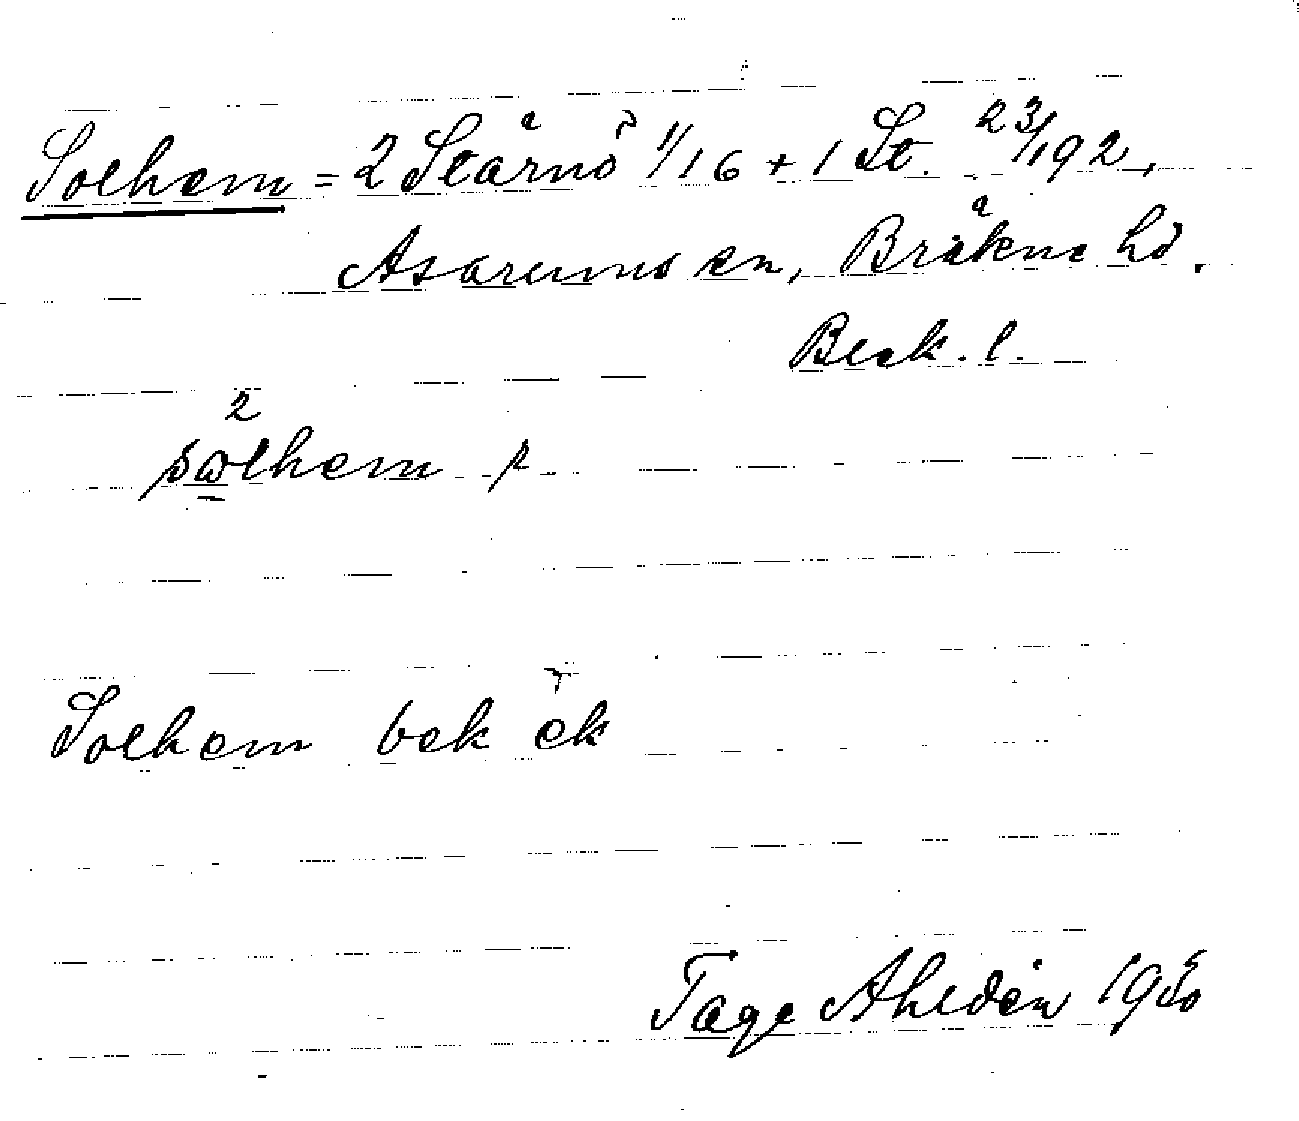 Solhem = 2 Stärnö 1/16 + 1 St. 23/192,
Asarums sn, Bräkne hd.
Blek. l.
solhem
Solhem bek ek
Tage Ahldén 1950